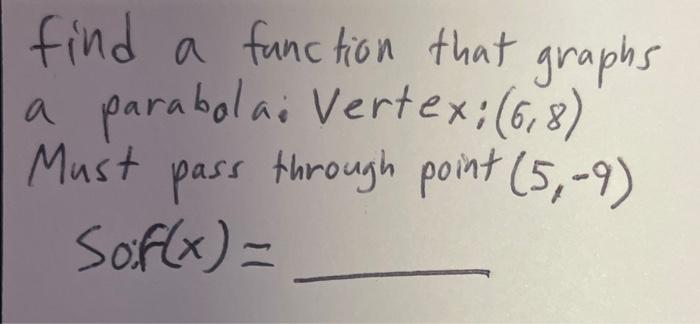 find a function that graphs
a parabola: Vertex: (6,8)
Must pass through point (5,-9)
So: f(x) = ________